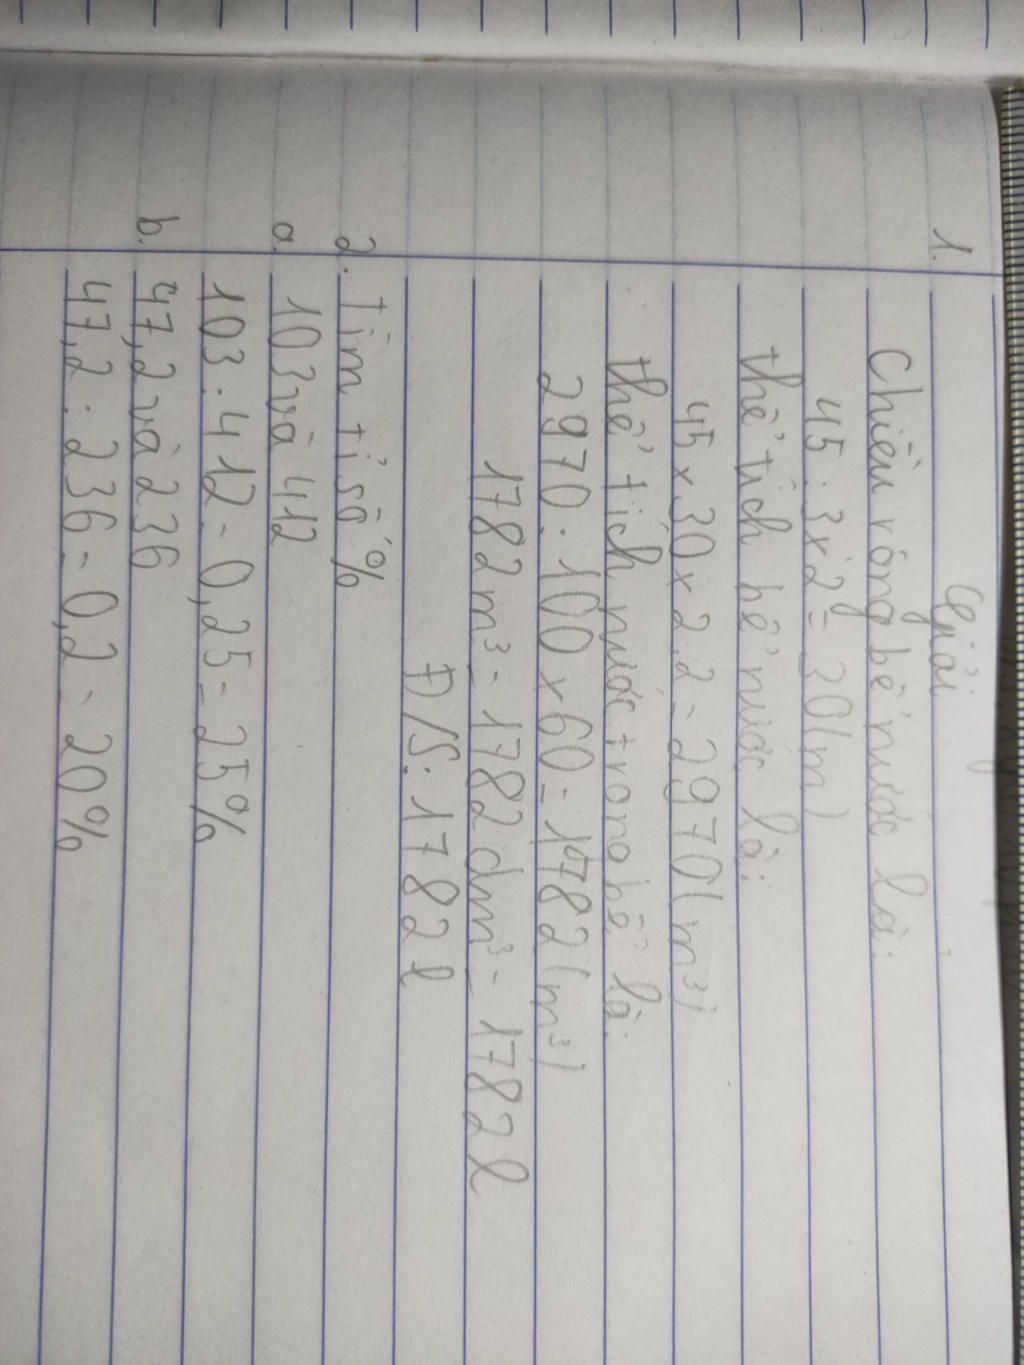 Giải
1.
Chiều rộng bể nước là:
45 : 3 x 2 = 30 (m)
thể tích bể nước là:
45 x 30 x 2,2 = 2970 (m³)
thể tích nước trong bể là:
2970 : 100 x 60 = 1782 (m³)
1782 m³ = 1782 dm³ = 1782 l
Đ/S: 1782 l
2. Tìm tỉ số %
a. 103 và 412
103 : 412 = 0,25 = 25%
b. 47,2 và 236
47,2 : 236 = 0,2 = 20%